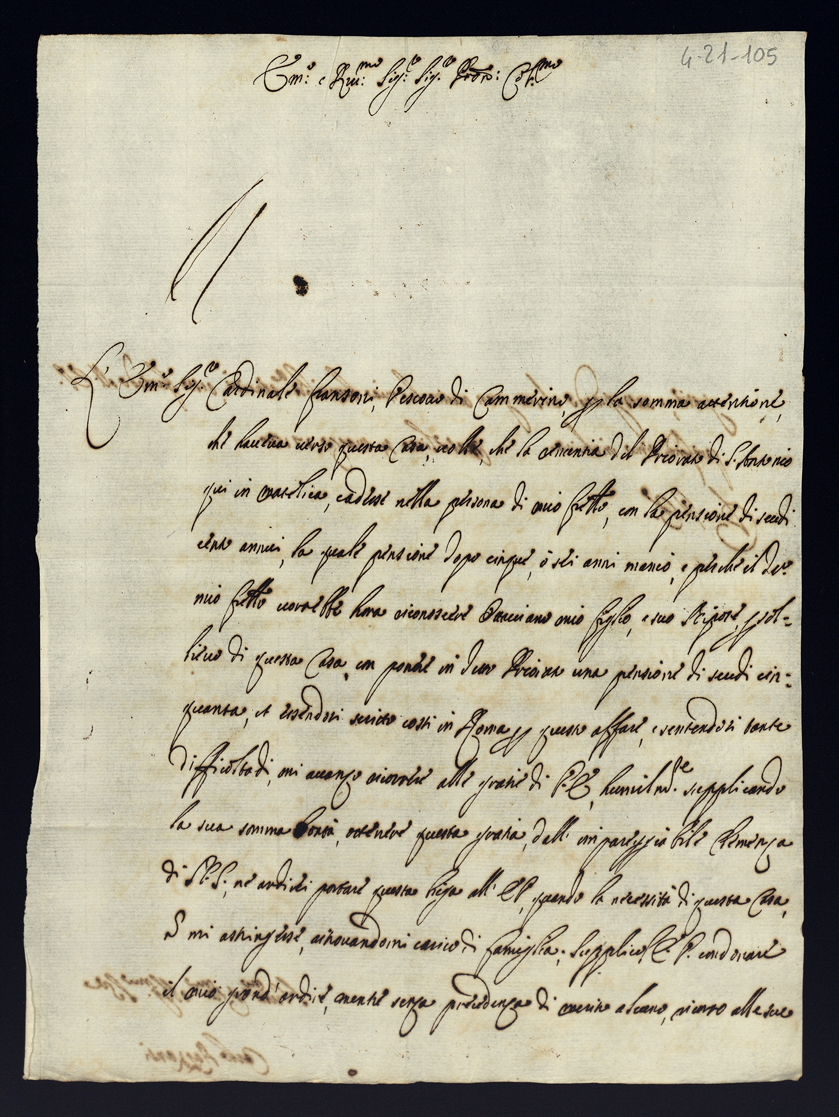 4-21-105
Em.º e Rev.mo Sig.re Sig.re Pron: Col.mo
L' Em.º Sig.re Cardinale Fransoni, Vescovo di Cammerino, la somma attentione,
che haveva verso questa Casa, volse, che la del Priorato di S. Antonio
qui in Matelica, cadesse nella persona di mio frello, con la pensione di scudi
cento annui, la quale pensione dopo cinque, ò sei anni mancò, e perche il do:
mio frello vorrebbe hora riconoscere Ottaviano mio figlio, e suo Nipote, sol=
lievo di questa Casa, con ponere in detto Priorato una pensione di scudi cin=
quanta, et essendosi scritto costì in Roma questo affare, e sentendosi tante
difficoltadi, mi avanzo ricorrere alle gratie di V. E., humilm.te supplicando
la sua somma bontà, ottenere questa gratia, dall' impareggiabile Clemenza
di N. S., ne ardirei portare questa briga all' E. V., quando la necessità di questa Casa,
mi astringesse, ritrovandomi carico di famiglia; supplico V. E. condonare
il mio grand' ardire, mentre senza precedenza di merito alcuno, ricorro alle sue